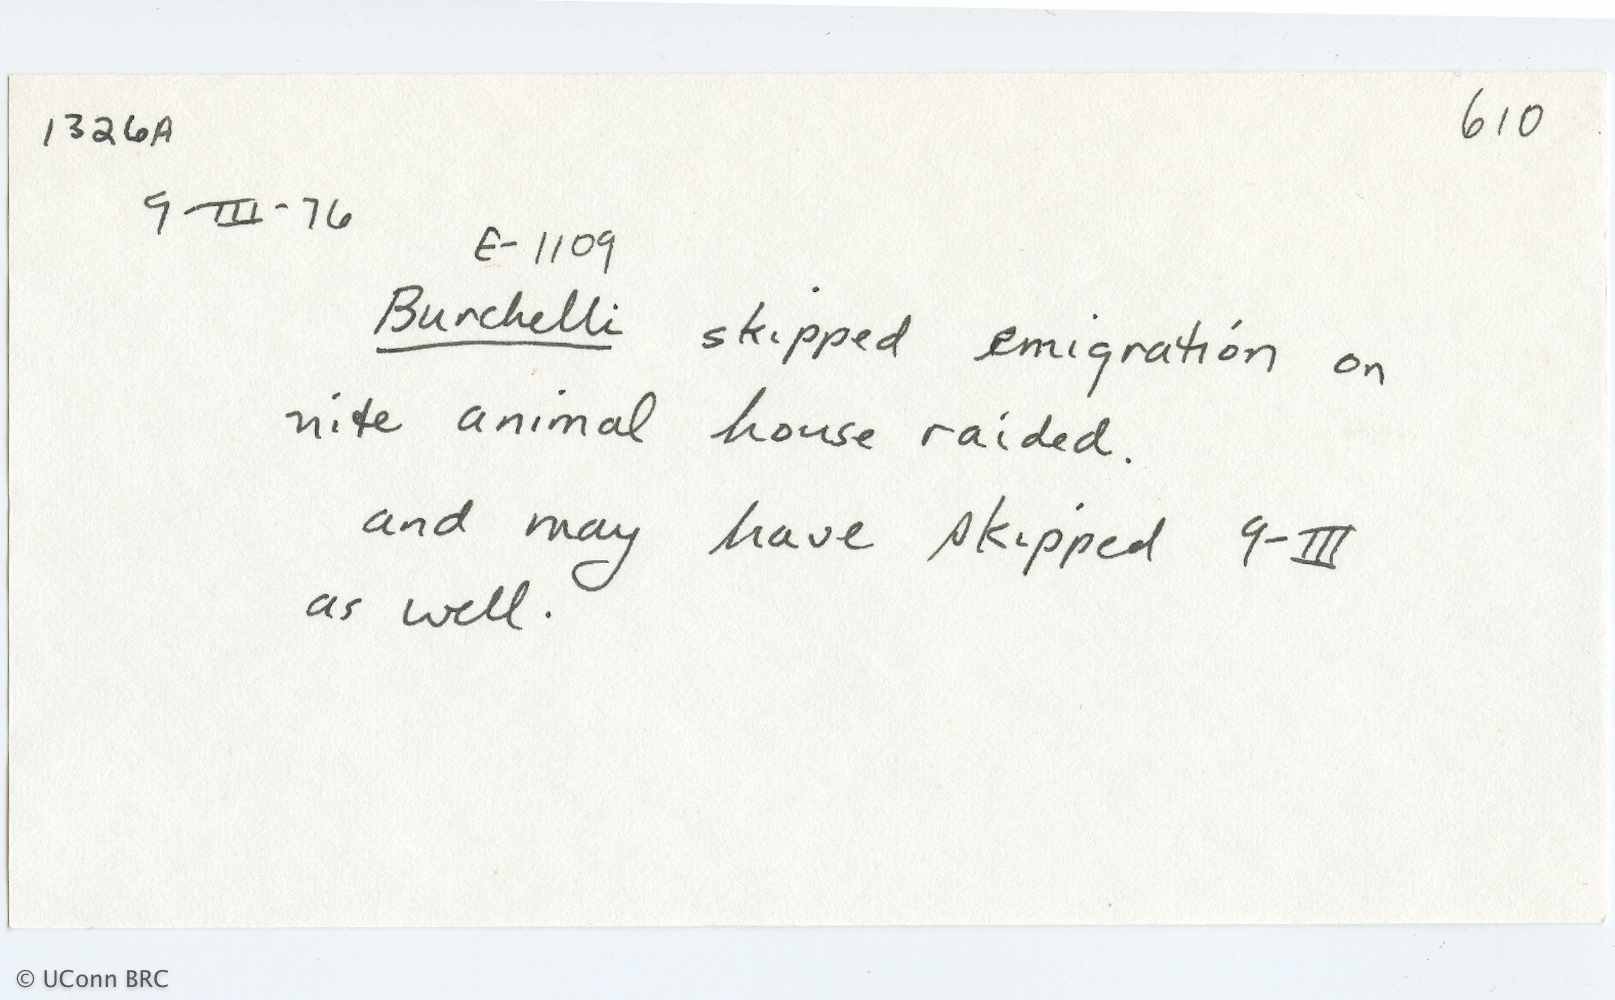 1326A
610
9-III-76
E-1109
Burchelli skipped emigration on
nite animal house raided.
and may have skipped 9-III
as well.
© UConn BRC